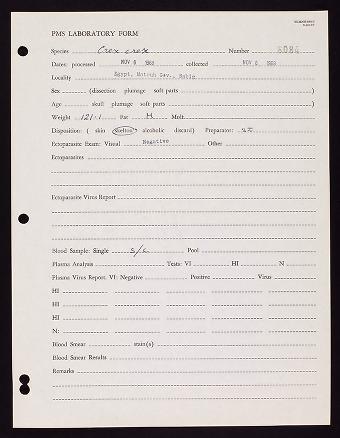 PMS LABORATORY FORM
Species Crex crex Number 8084
Dates: processed NOV 6 1968 collected NOV 6 1968
Locality Egypt, Matruh Gov.,
Sex (dissection plumage soft parts )
Age skull plumage soft parts )
Weight 121.1 Fat H Molt
Disposition: ( skin skelton alcoholic discard) Preparator:
Ectoparasite Exam: Visual Negative Other
Ectoparasites
Ectoparasite Virus Report
Blood Sample: Single s/c Pool
Plasma Analysis Tests: VI HI N
Plasma Virus Report. VI: Negative Positive Virus
HI
HI
HI
N:
Blood Smear stain(s)
Blood Smear Results
Remarks